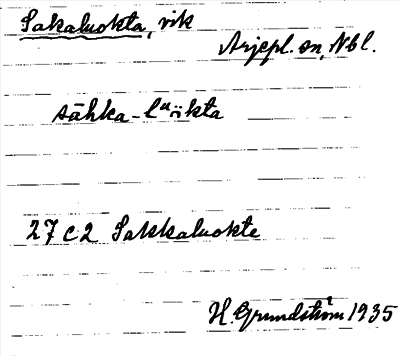 Sakaluokta, vik
Arjepl. sn, Nbl.
sāhka-luökta
27 c 2 Sakkaluokte
H. Grundström 1935